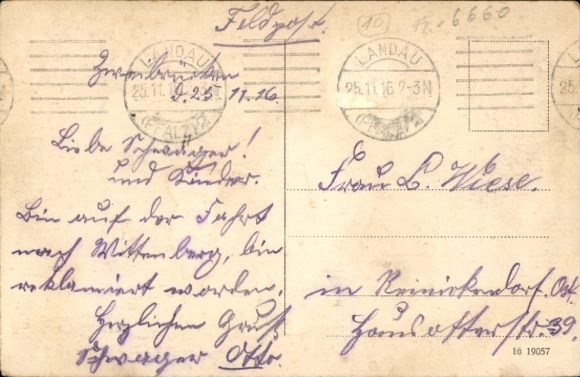 Feldpost.
10
Fz. 6660
LANDAU
25.11.16
(PFALZ) 2
LANDAU
25.11.16.2-3N
(PFALZ) 2
Zweibrücken
d. 25. 11. 16.
Liebe Schwäger!
und Kinder.
Bin auf der Fahrt
nach Wittenberg, bin
reklamiert worden.
Herzlichen Gruß
Schwager Otto.
Frau L. Wiese.
in Reinickendorf. Ost.
Hausotterstr. 39.
16 19057